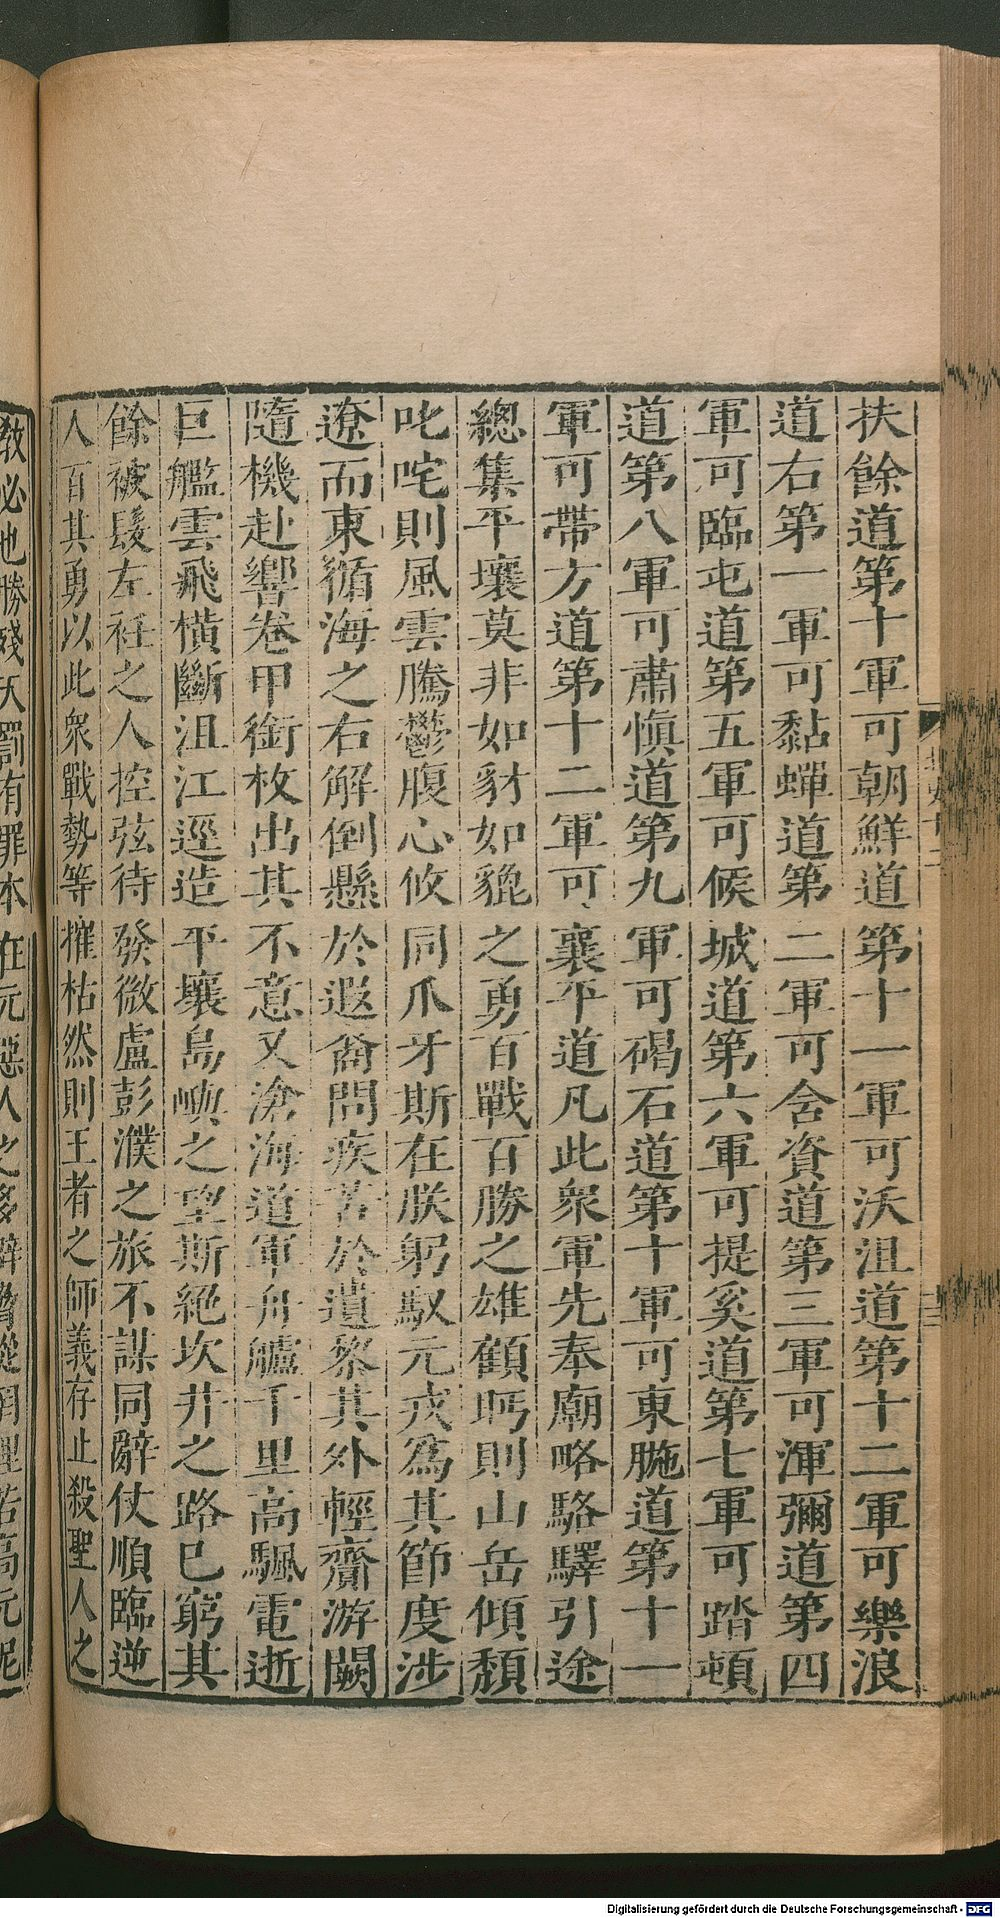 扶餘道第十軍可朝鮮道第十一軍可沃沮道第十二軍可樂浪
道右第一軍可黏蟬道第二軍可含資道第三軍可渾彌道第四
軍可臨屯道第五軍可候城道第六軍可提奚道第七軍可踏頓
道第八軍可肅愼道第九軍可碣石道第十軍可東暆道第十一
軍可帶方道第十二軍可襄平道凡此衆軍先奉廟略駱驛引途
總集平壤莫非如豺如貔之勇百戰百勝之雄顧眄則山岳傾頹
叱咤則風雲騰鬱腹心攸同爪牙斯在朕躬馭元戎爲其節度涉
遼而東循海之右解倒懸於遐裔問疾苦於遺黎其外輕齎游闕
隨機赴響卷甲銜枚出其不意又滄海道軍舟艫千里高颿電逝
巨艦雲飛橫斷沮江逕造平壤島嶼之望斯絕坎井之路已窮其
餘被髮左衽之人控弦待發微盧彭濮之旅不謀同辭仗順臨逆
人百其勇以此衆戰勢等摧枯然則王者之師義存止殺聖人之
教必也勝殘天罰有罪本在元惡人之多辟脅從罔理若高元泥
Digitalisierung gefördert durch die Deutsche Forschungsgemeinschaft - DFG